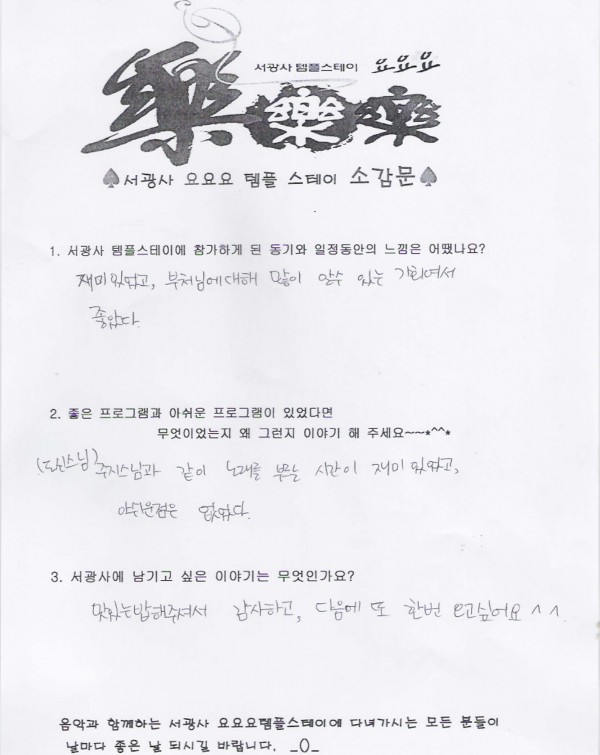 서광사 템플스테이 요요요
樂樂樂
♠서광사 요요요 템플 스테이 소감문♠
1. 서광사 템플스테이에 참가하게 된 동기와 일정동안의 느낌은 어땠나요?
재미있었고, 부처님에대해 많이 알수 있는 기회여서
좋았다.
2. 좋은 프로그램과 아쉬운 프로그램이 있었다면
무엇이었는지 왜 그런지 이야기 해 주세요~~*^^*
(도신스님)주지스님과 같이 노래를 부를 시간이 재미있었고,
아쉬운점은 없었다.
3. 서광사에 남기고 싶은 이야기는 무엇인가요?
맛있는밥해주셔서 감사하고, 다음에 또 한번 오고싶어요 ^^
음악과 함께하는 서광사 요요요템플스테이에 다녀가시는 모든 분들이
날마다 좋은 날 되시길 바랍니다. _O_